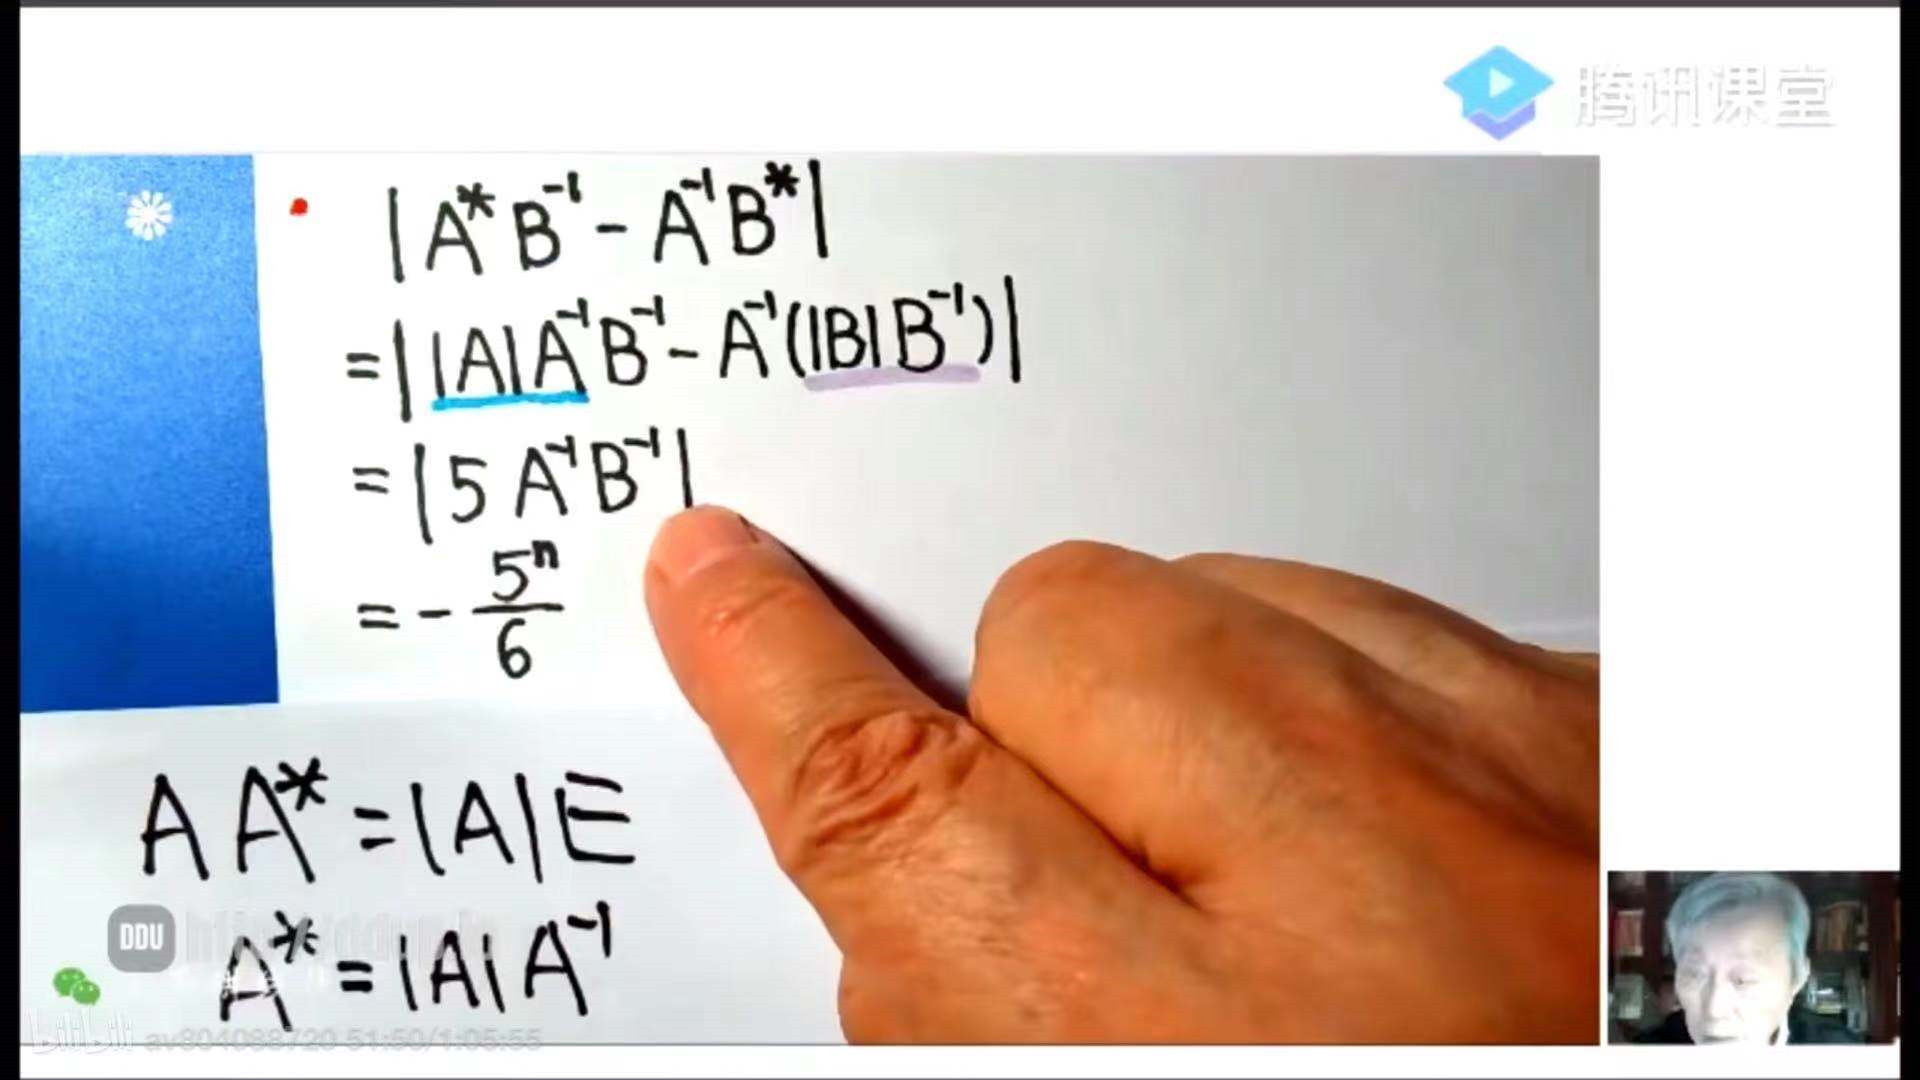 腾讯课堂
|A*B⁻¹-A⁻¹B*|
=||A|A⁻¹B⁻¹-A⁻¹(|B|B⁻¹)|
=|5A⁻¹B⁻¹|
=-5ⁿ/6
AA*=|A|E
DDU
A*=|A|A⁻¹
bilibili av804088720 51:50/1:05:55